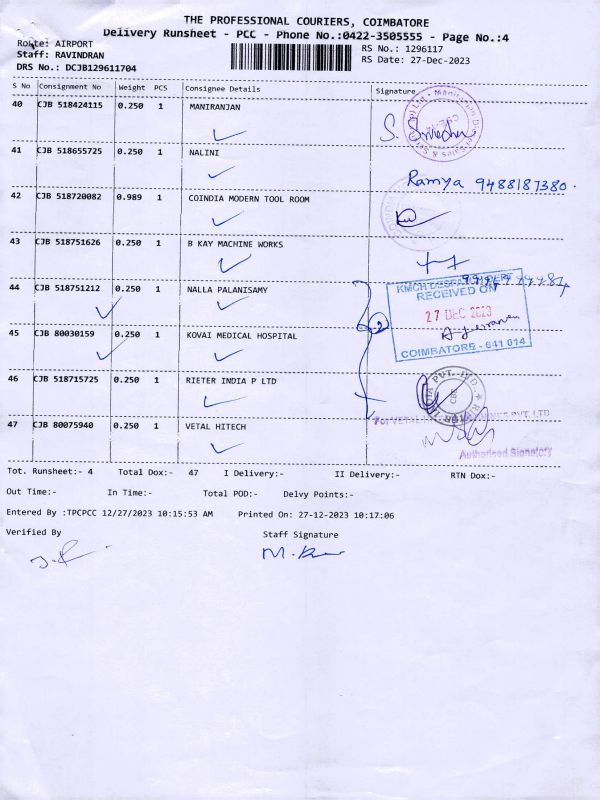 THE PROFESSIONAL COURIERS, COIMBATORE
Delivery Runsheet - PCC - Phone No.:0422-3505555 - Page No.:4
Route: AIRPORT
RS No.: 1296117
Staff: RAVINDRAN
RS Date: 27-Dec-2023
DRS No.: DCJB129611704
S No Consignment No Weight PCS Consignee Details Signature
40 CJB 518424115 0.250 1 MANIRANJAN
S.
41 CJB 518655725 0.250 1 NALINI
Ramya 9488187380.
42 CJB 518720082 0.989 1 COINDIA MODERN TOOL ROOM
43 CJB 518751626 0.250 1 B KAY MACHINE WORKS
44 CJB 518751212 0.250 1 NALLA PALANISAMY
RECEIVED ON
27 DEC 2023
45 CJB 80030159 0.250 1 KOVAI MEDICAL HOSPITAL
2
COIMBATORE - 641 014
46 CJB 518715725 0.250 1 RIETER INDIA P LTD
47 CJB 80075940 0.250 1 VETAL HITECH
Authorised Signatory
Tot. Runsheet:- 4 Total Dox:- 47 I Delivery:- II Delivery:- RTN Dox:-
Out Time:- In Time:- Total POD:- Delvy Points:-
Entered By :TPCPCC 12/27/2023 10:15:53 AM Printed On: 27-12-2023 10:17:06
Verified By Staff Signature